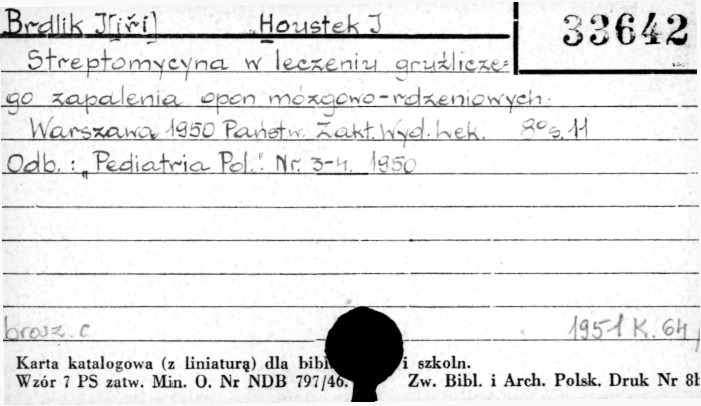 Brdlik J[iři] Houstek J 33642
Streptomycyna w leczeniu gruźlicze=
go zapalenia opon mózgowo-rdzeniowych.
Warszawa 1950 Państw. Zakł. Wyd. Lek. 8° s. 11
Odb.: „Pediatria Pol.". Nr. 3-4. 1950
brosz. c 1951 K. 64
Karta katalogowa (z liniaturą) dla i szkoln.
Wzór 7 PS zatw. Min. O. Nr NDB 797/46. Zw. Bibl. i Arch. Polsk. Druk Nr